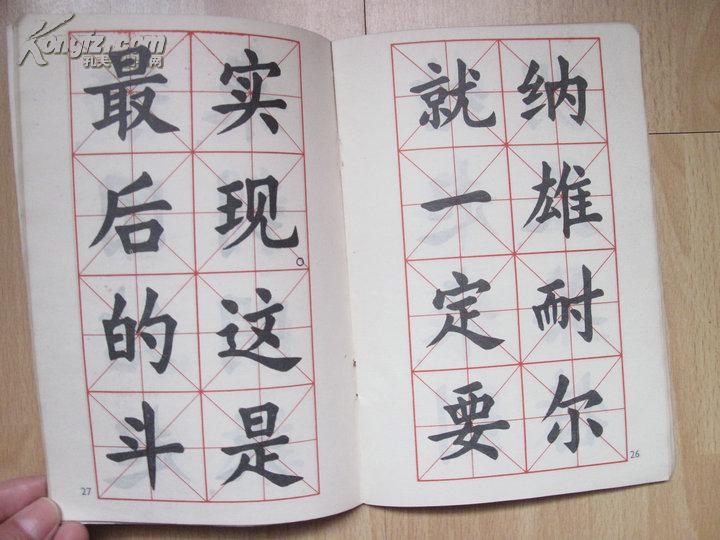 纳雄耐尔
就一定要
26
实现。这是
最后的斗
27
Kongfz.com
孔夫子旧书网